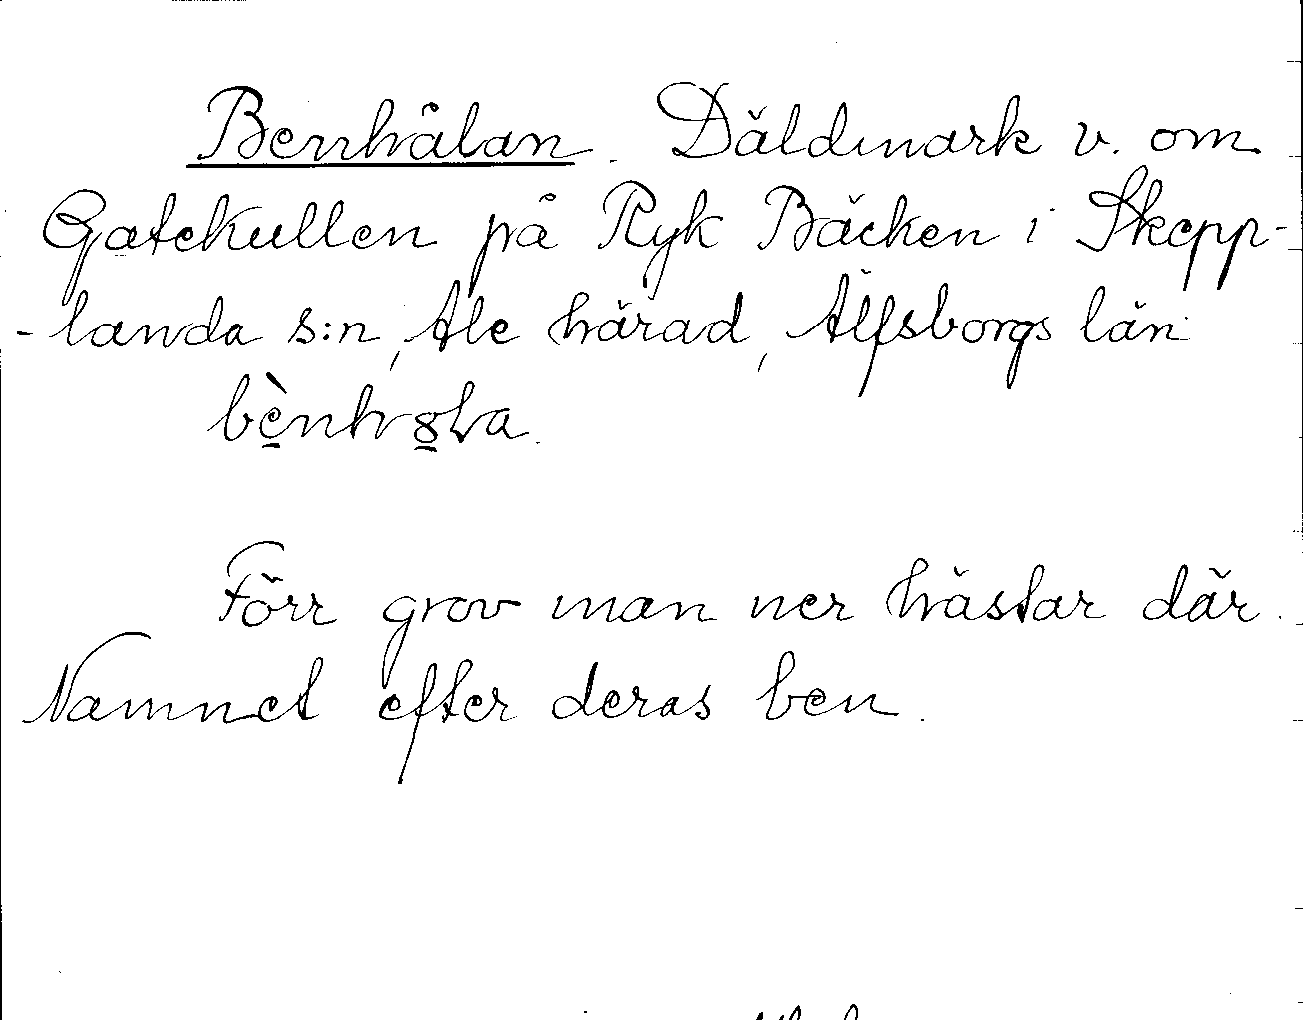 Benhålan. Däldmark v. om
Gatekullen på Ryk Bäcken i Skepp-
-landa s:n, Ale härad, Älfsborgs län
bènhola.
Förr grov man ner hästar där.
Namnet efter deras ben.